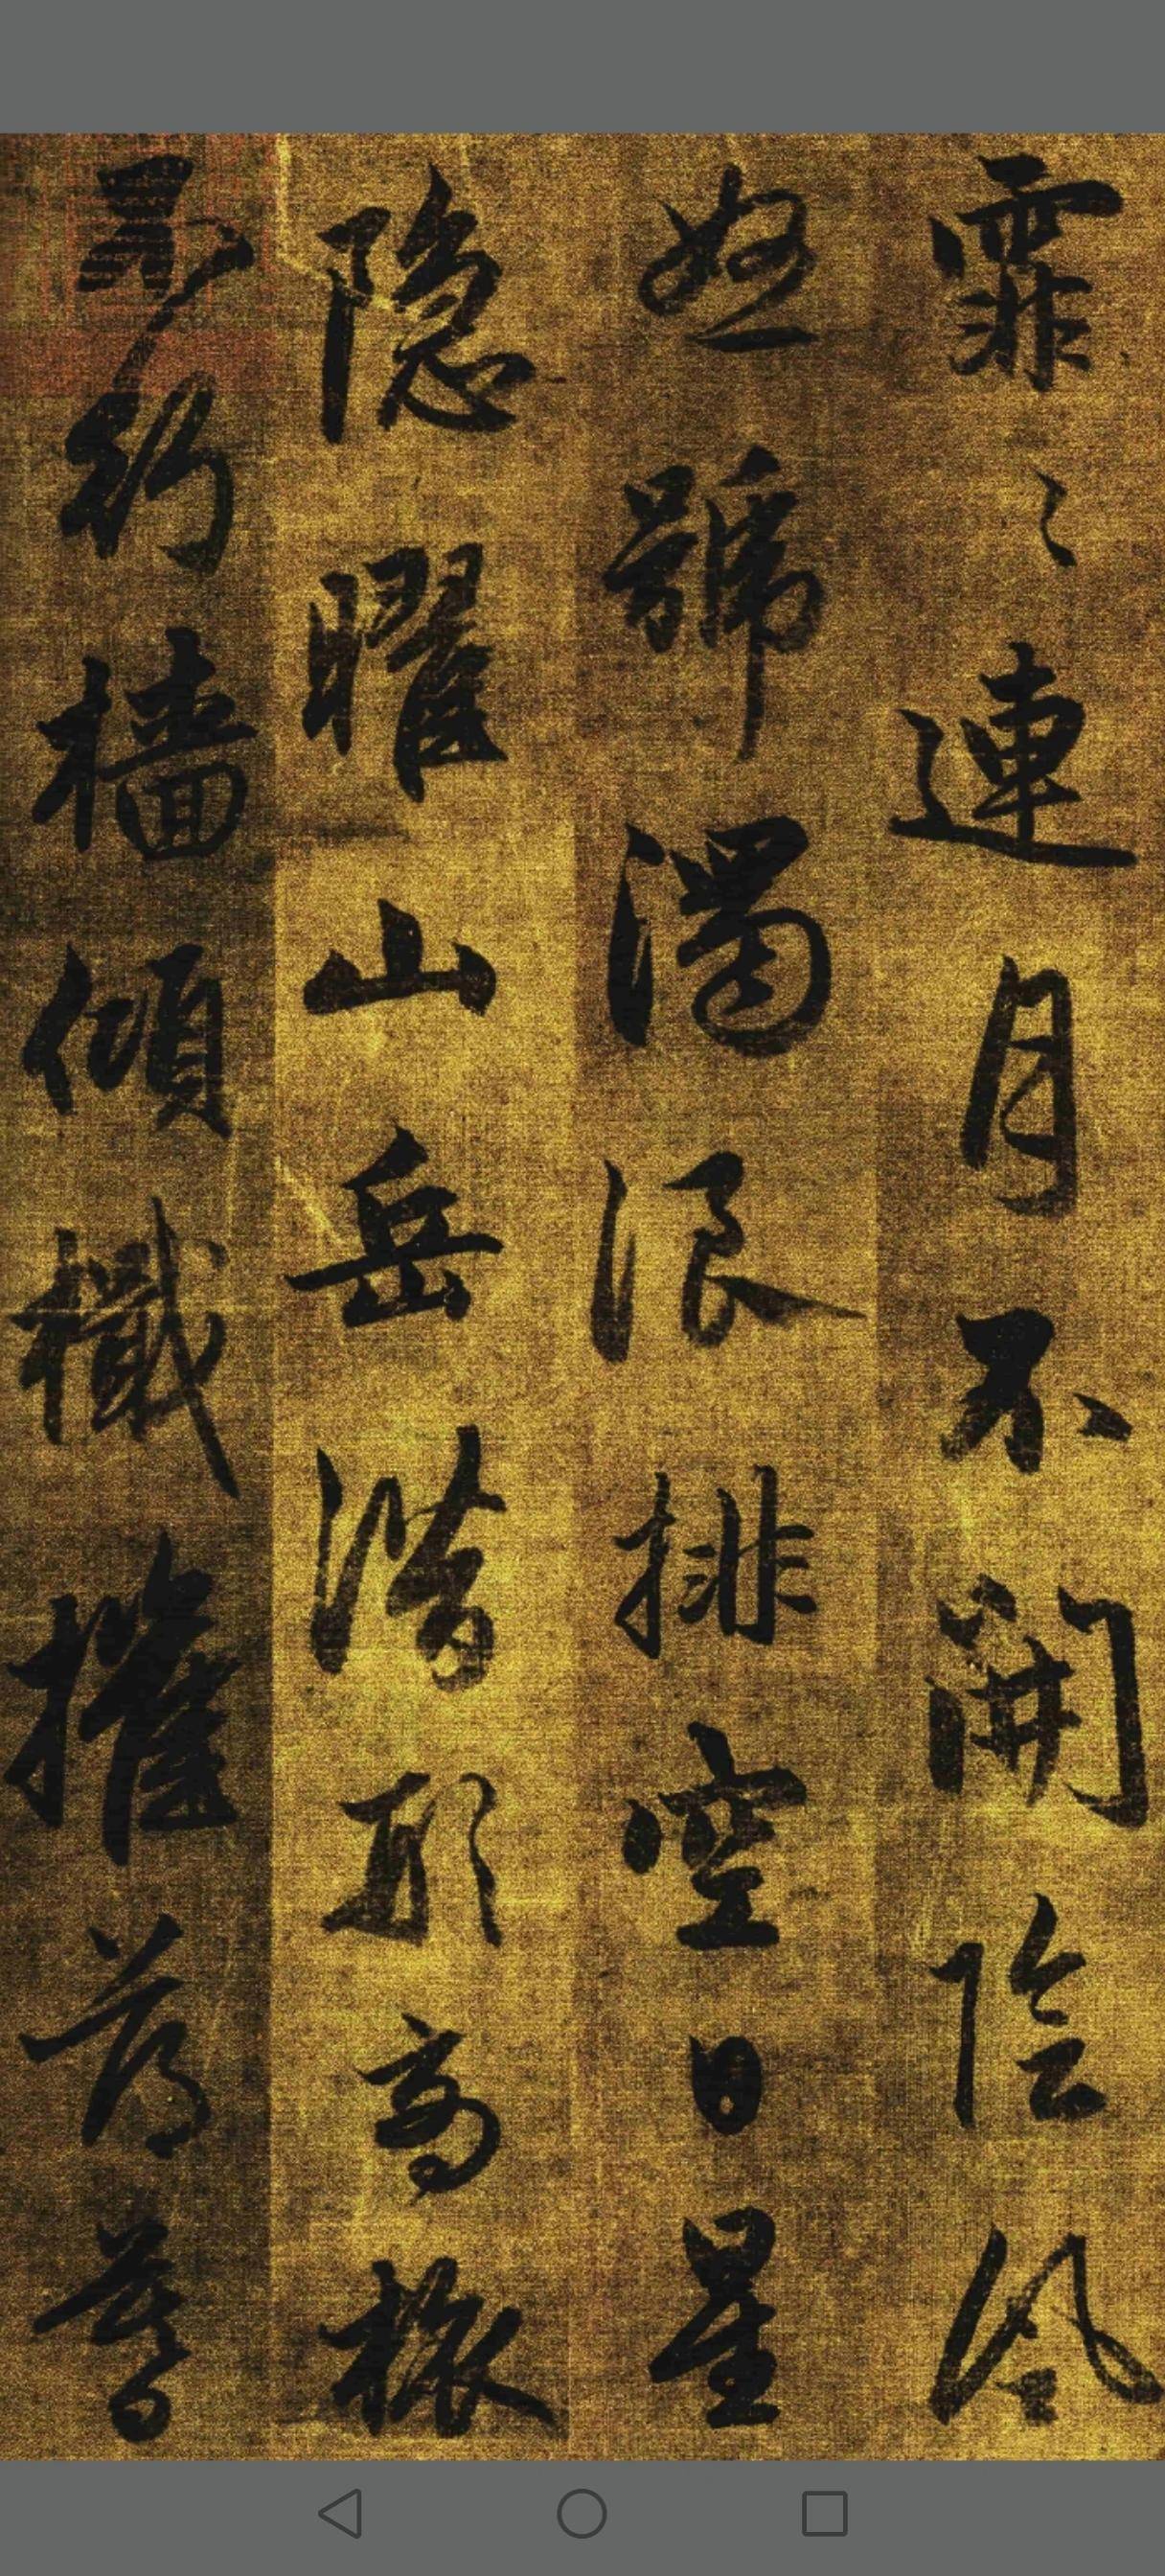 霏々連月不開陰風
怒號濁浪排空日星
隐曜山岳潛形商旅
行檣傾檝摧薄暮